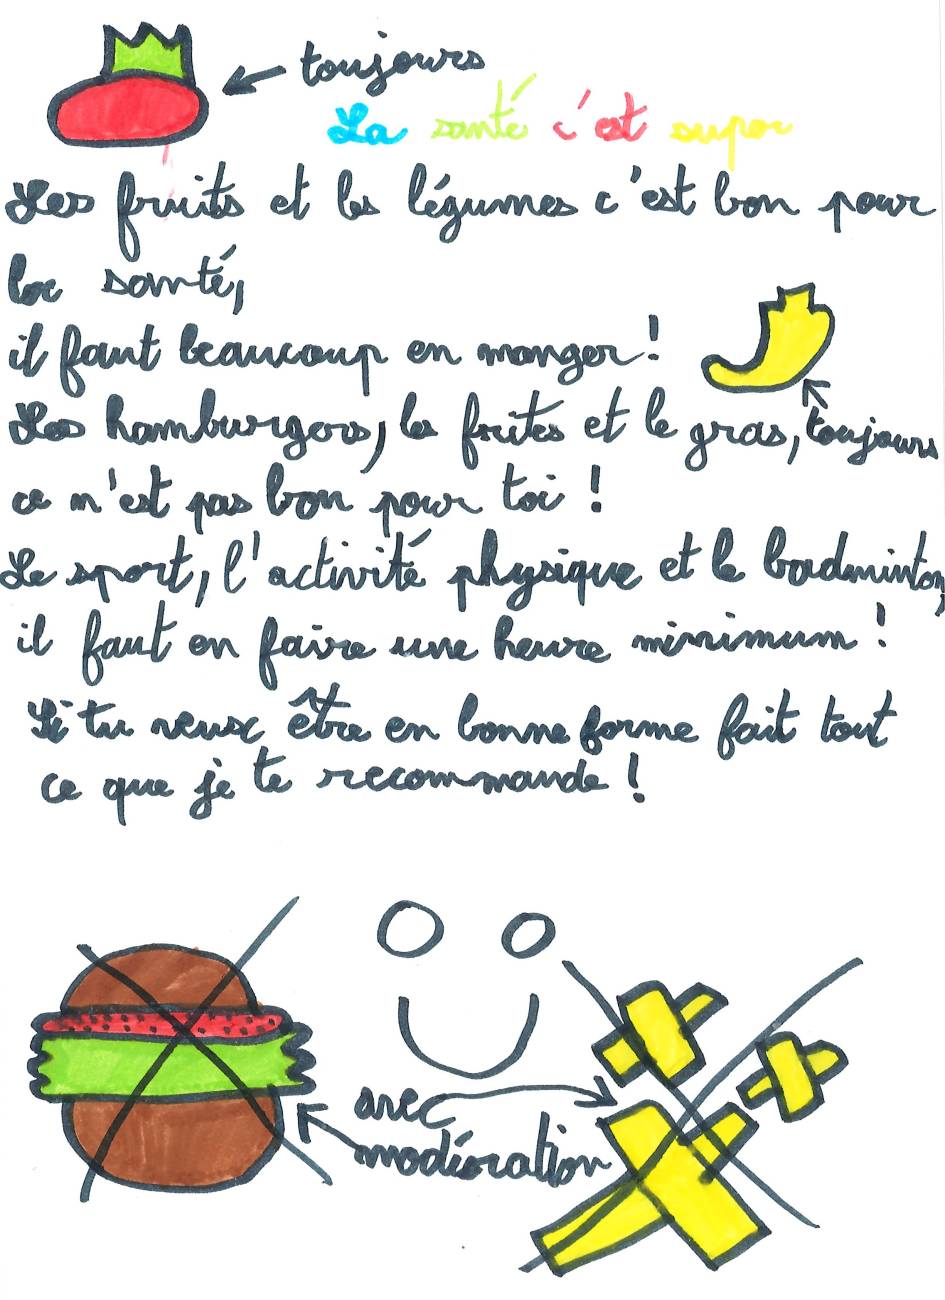 toujours
La santé c'est super
Les fruits et les légumes c'est bon pour
la santé,
il faut beaucoup en manger !
Les hamburgers, les frites et le gras,
toujours
ce n'est pas bon pour toi !
Le sport, l'activité physique et le badminton,
il faut en faire une heure minimum !
Si tu veux être en bonne forme fait tout
ce que je te recommande !
avec
modération